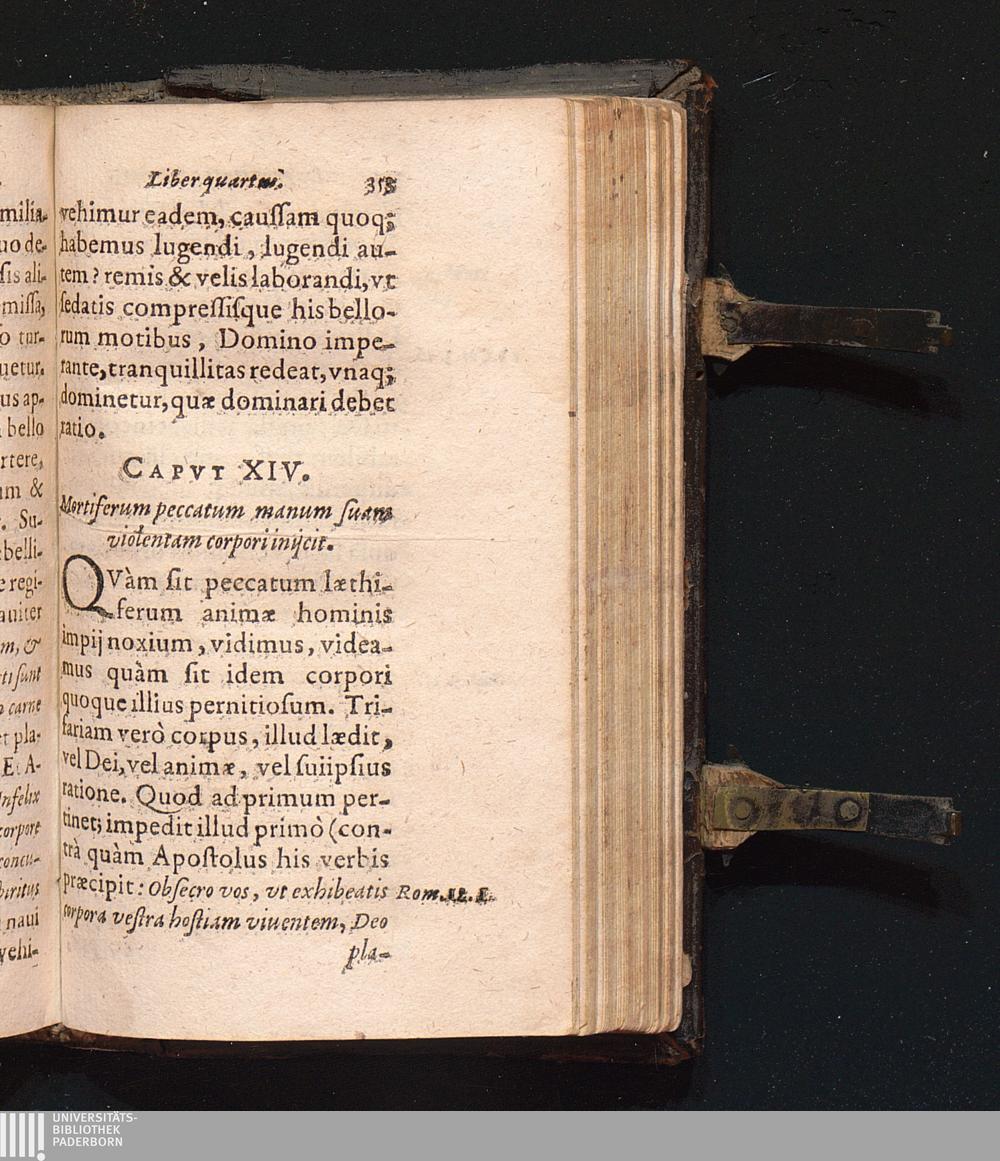 milia-
uo de-
ſis ali-
miſſa,
o tur-
uetur.
us ap-
bello
rtere,
um &
. Su-
ebelli-
e regi-
auiter
m, &
ti ſunt
carne
et pla-
E. A-
Infelix
corpore
concu-
piritus
naui
vehi-
Liber quartus. 353
vehimur eadem, cauſſam quoq;
habemus lugendi, lugendi au-
tem? remis & velis laborandi, vt
ſedatis compreſſiſque his bello-
rum motibus, Domino impe-
rante, tranquillitas redeat, vnaq;
dominetur, quæ dominari debet
ratio.
CAPVT XIV.
Mortiferum peccatum manum ſuam
violentam corpori inijcit.
QVàm ſit peccatum læthi-
ferum animæ hominis
impij noxium, vidimus, videa-
mus quàm ſit idem corpori
quoque illius pernitioſum. Tri-
fariam verò corpus, illud lædit,
vel Dei, vel animæ, vel ſuiipſius
ratione. Quod ad primum per-
tinet; impedit illud primò (con-
trà quàm Apoſtolus his verbis
præcipit: Obſecro vos, vt exhibeatis Rom. 12. 1.
corpora veſtra hoſtiam viuentem, Deo
pla-
UNIVERSITÄTS-
BIBLIOTHEK
PADERBORN